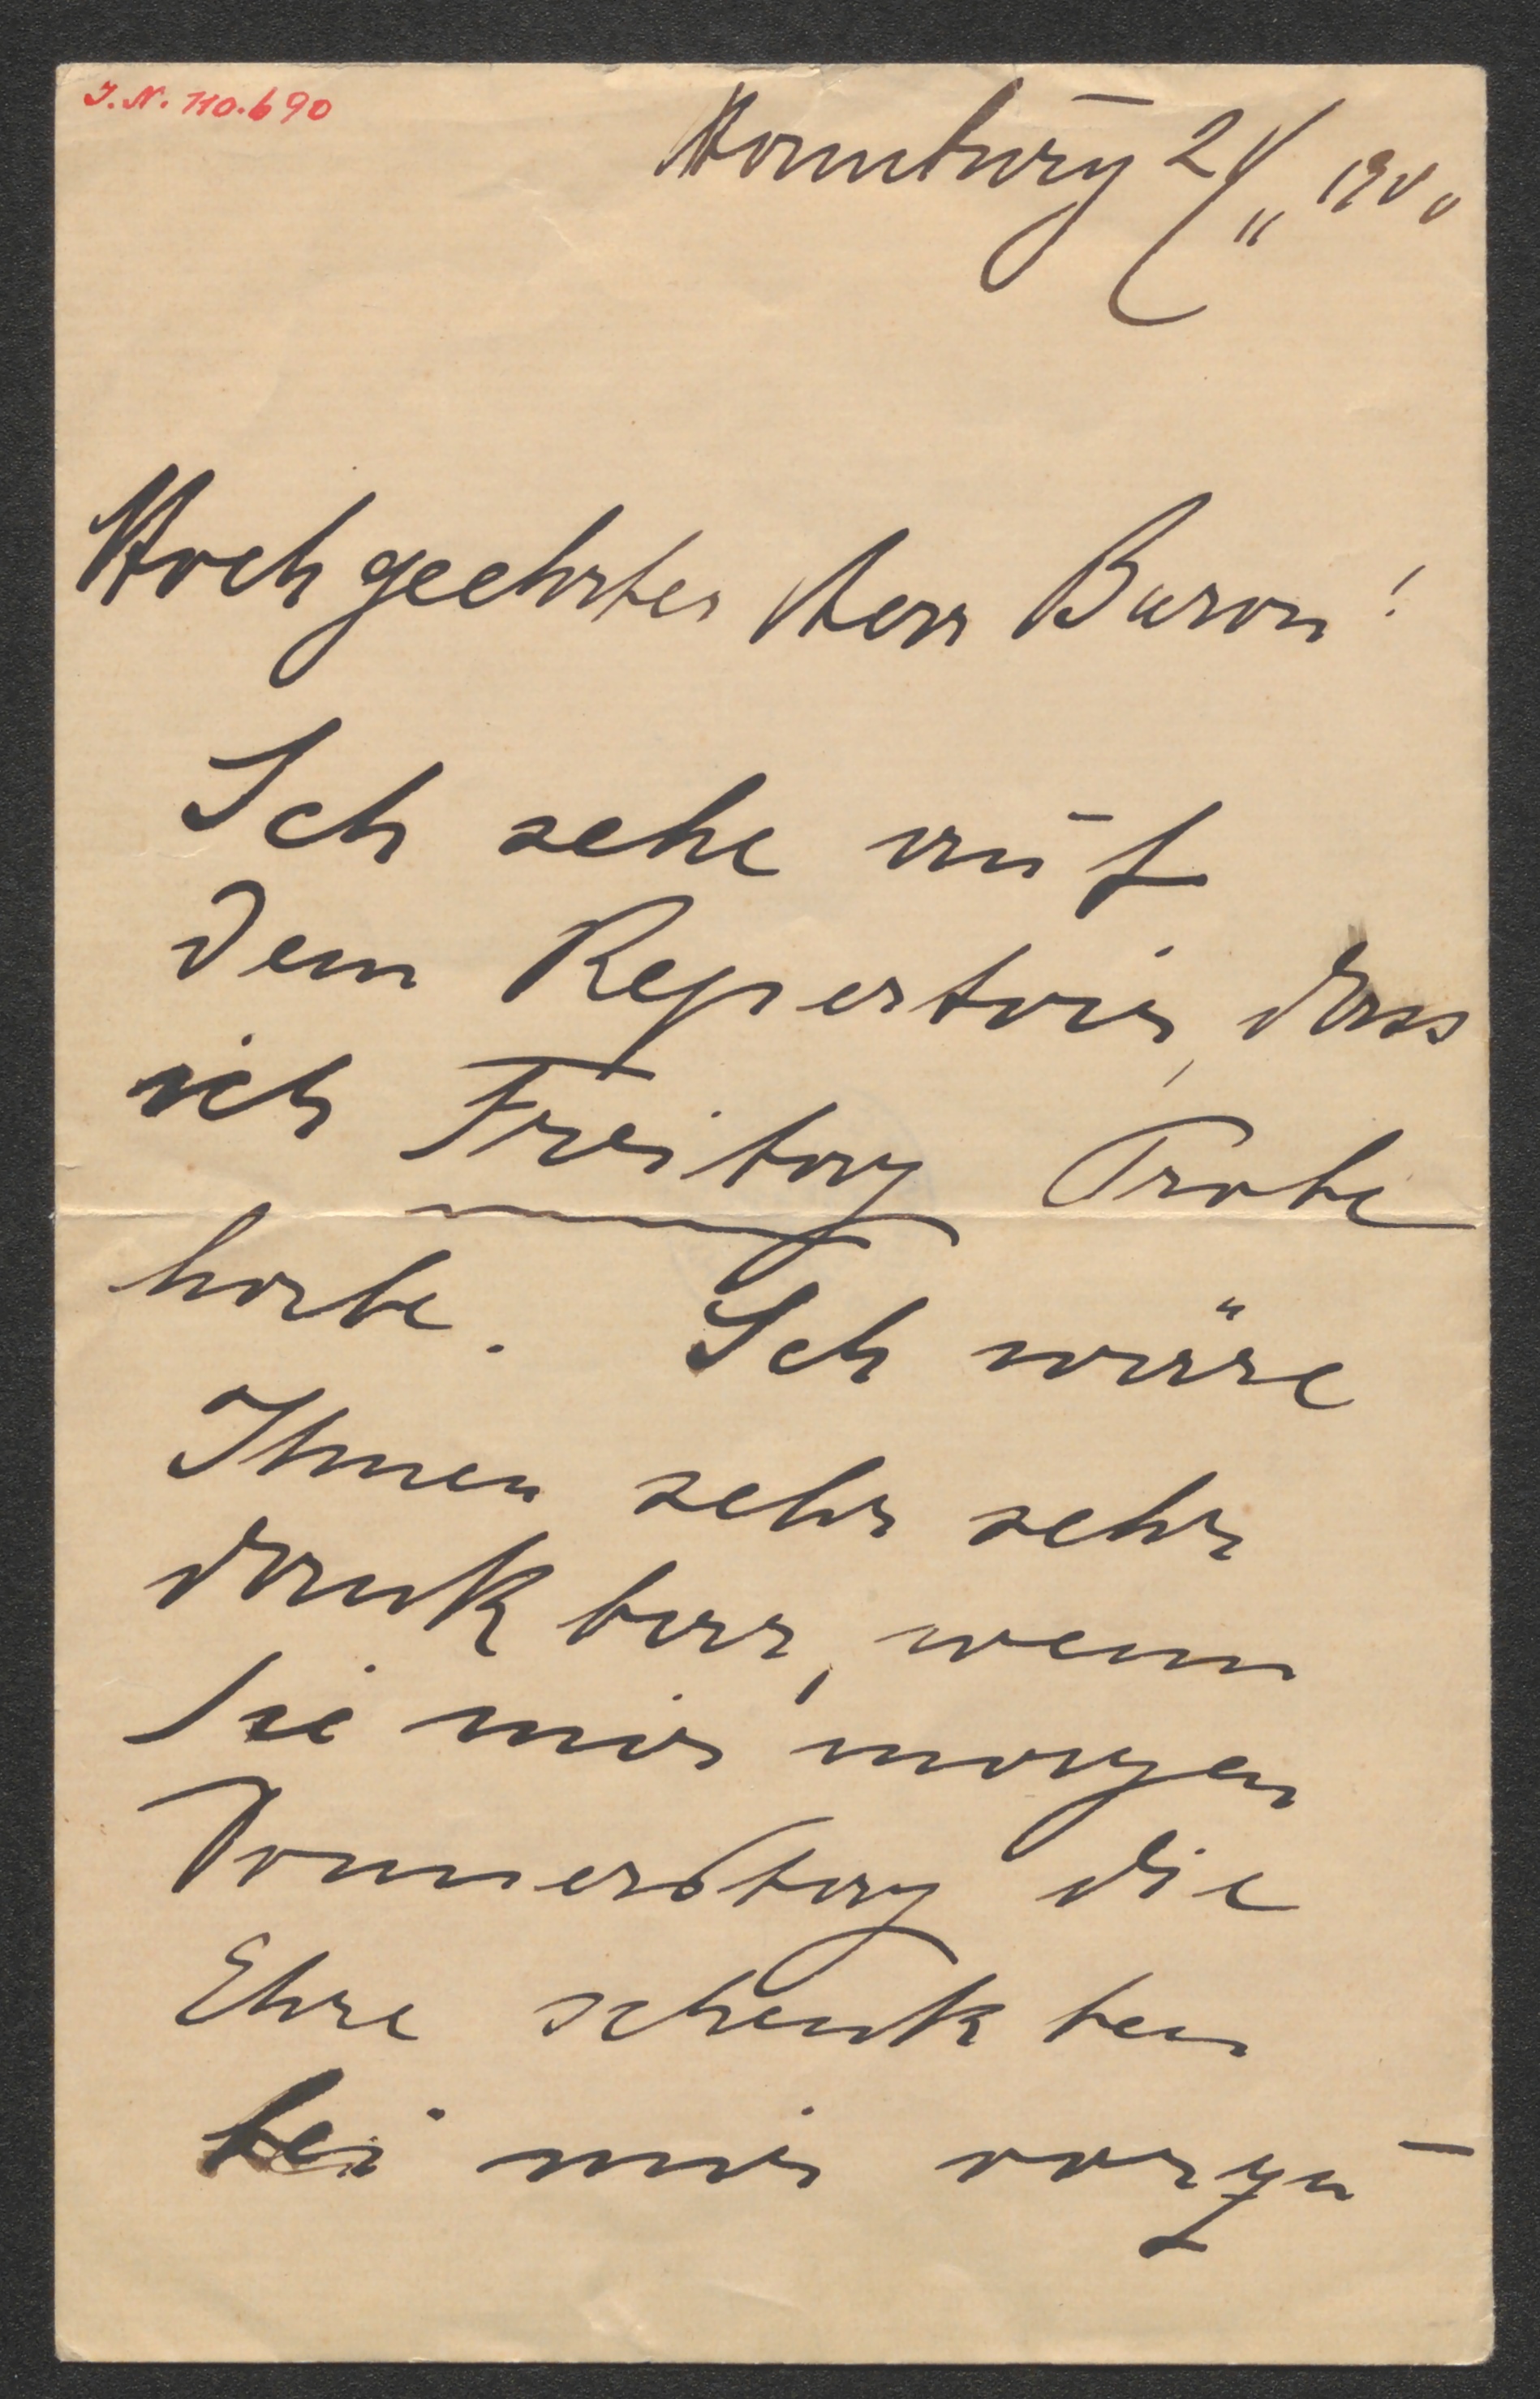 J.N. 110.690
Hamburg 21/11 1900
Hochgeehrter Herr Baron!
Ich sehe auf
dem Repertoir, dass
ich Freitag Probe
habe. Ich wäre
Ihnen sehr sehr
dankbar, wenn
Sie mir morgen
Donnerstag die
Ehre schenkten
bei mir vorzu